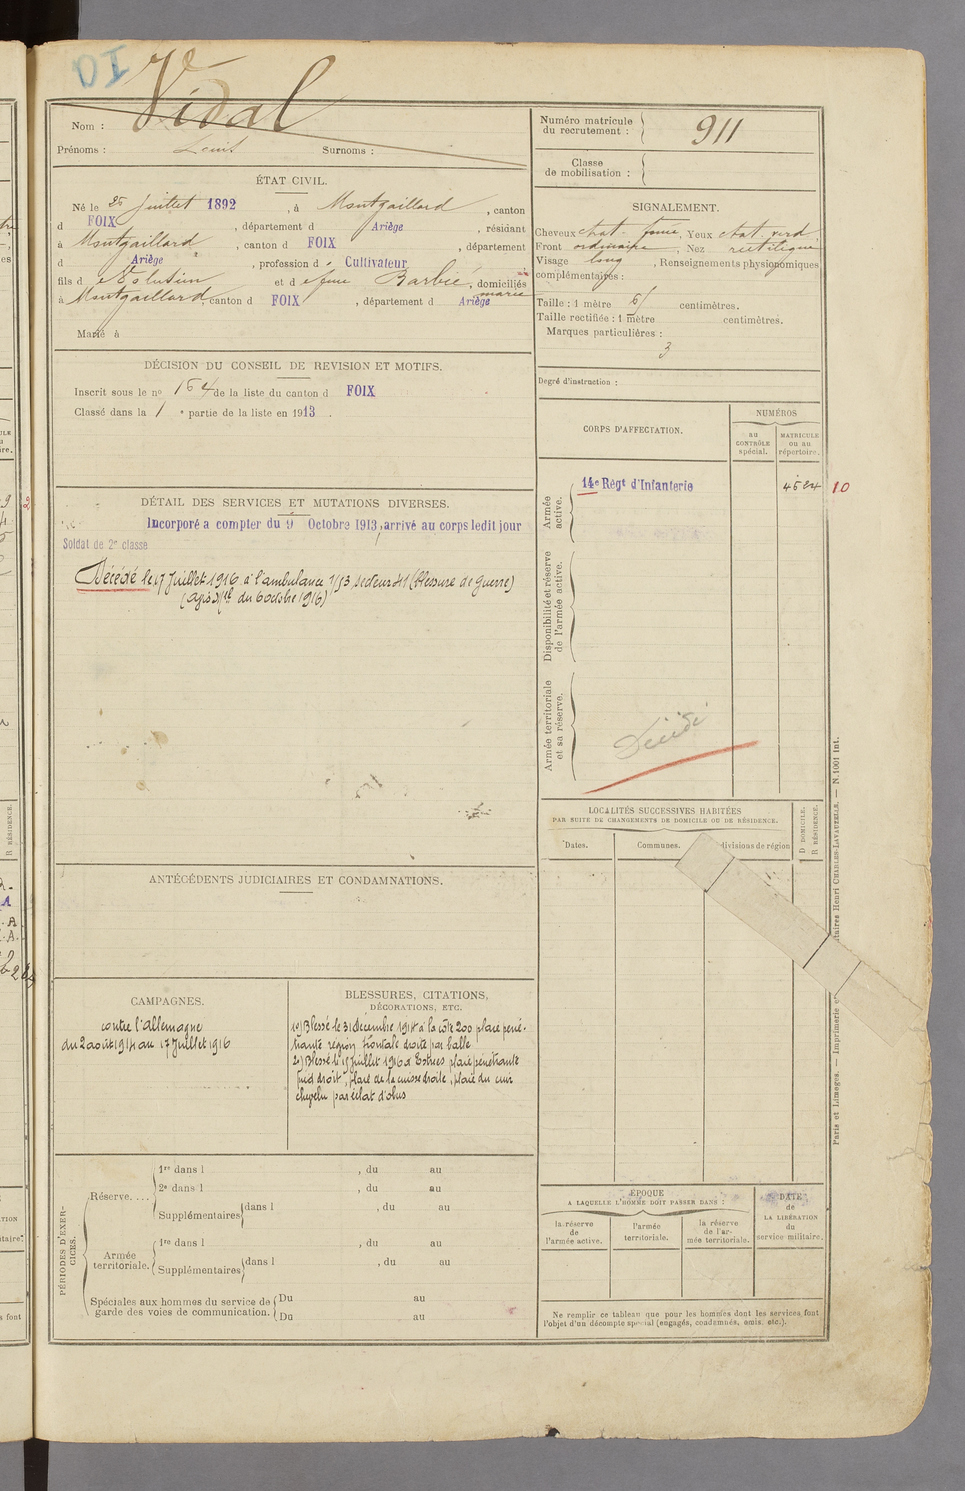 DI
Nom : Vidal
Prénoms : Louis Surnoms :
Numéro matricule du recrutement : 911
Classe de mobilisation :
ÉTAT CIVIL.
Né le 25 Juillet 1892, à Montgaillard, canton
d FOIX, département d Ariège, résidant
à Montgaillard, canton d FOIX, département
d Ariège, profession d Cultivateur
fils d e et d e feue Barbié, domiciliés
à Montgaillard canton d FOIX, département d Ariège
Marié à
SIGNALEMENT.
Cheveux chat. foncé, Yeux chat. verd
Front ordinaire, Nez rectiligne
Visage long, Renseignements physionomiques
complémentaires :
Taille : 1 mètre 61 centimètres.
Taille rectifiée : 1 mètre centimètres.
Marques particulières :
3
Degré d'instruction :
DÉCISION DU CONSEIL DE REVISION ET MOTIFS.
Inscrit sous le nº 154 de la liste du canton d FOIX
Classé dans la 1 e partie de la liste en 1913.
DÉTAIL DES SERVICES ET MUTATIONS DIVERSES.
Incorporé a compter du 9 Octobre 1913, arrivé au corps ledit jour
Soldat de 2e classe
Décédé le 17 Juillet 1916 à l'ambulance 1/53 secteur 41 (Blessure de Guerre)
(avis du 6 octobre 1916)
CORPS D'AFFECTATION.
NUMÉROS
au CONTRÔLE spécial.
MATRICULE ou au répertoire.
Armée active.
14e Régt d'Infanterie
4524 10
Disponibilité et réserve de l'armée active.
Armée territoriale et sa réserve.
Décédé
LOCALITÉS SUCCESSIVES HABITÉES
PAR SUITE DE CHANGEMENTS DE DOMICILE OU DE RÉSIDENCE.
Dates.
Communes.
divisions de région
D DOMICILE.
R RÉSIDENCE.
ANTÉCÉDENTS JUDICIAIRES ET CONDAMNATIONS.
CAMPAGNES.
contre l'Allemagne
du 2 août 1914 au 17 Juillet 1916
BLESSURES, CITATIONS,
DÉCORATIONS, ETC.
1º) Blessé le 31 décembre 1914 à la côte 200 plaie péné-
trante région frontale droite par balle
2º) Blessé le 15 Juillet 1916 à Estrées plaie pénétrante
pied droit, plaie de la cuisse droite, plaie du cuir
chevelu par éclat d'obus
PÉRIODES D'EXERCICES.
Réserve....
1re dans l , du au
2e dans l , du au
Supplémentaires dans l , du au
Armée territoriale.
1re dans l , du au
Supplémentaires dans l , du au
Spéciales aux hommes du service de garde des voies de communication.
Du au
Du au
ÉPOQUE
A LAQUELLE L'HOMME DOIT PASSER DANS :
la réserve de l'armée active.
l'armée territoriale.
la réserve de l'armée territoriale.
DATE de LA LIBÉRATION du service militaire.
Ne remplir ce tableau que pour les hommes dont les services font
l'objet d'un décompte spécial (engagés, condamnés, omis, etc.).
Paris et Limoges. — Imprimerie et Henri CHARLES-LAVAUZELLE. — N. 1001 int.